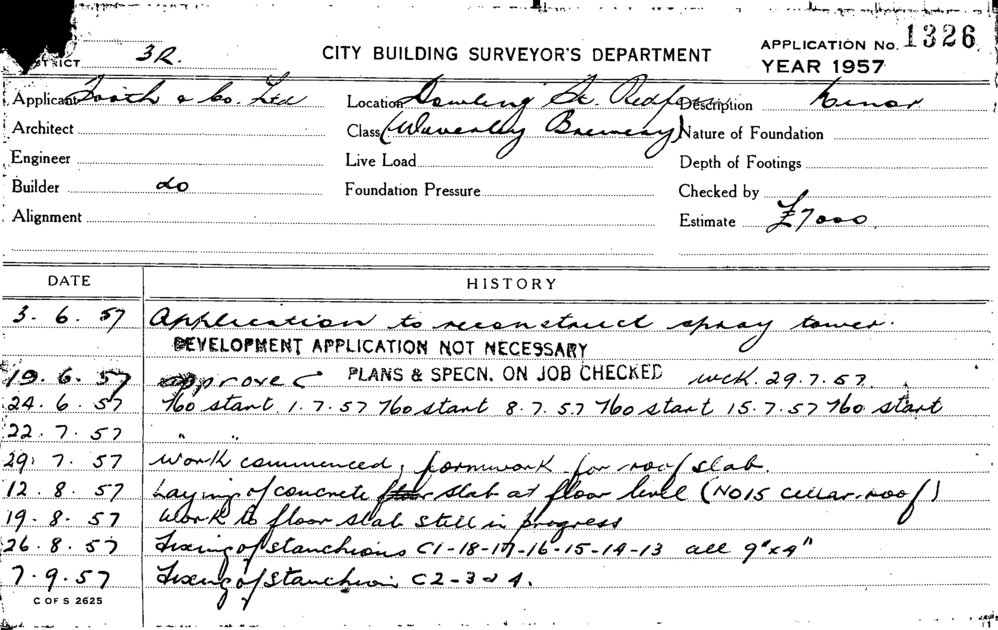 DISTRICT 3R. CITY BUILDING SURVEYOR'S DEPARTMENT APPLICATION No. 1326
YEAR 1957
Applicant Tooth & Co. Ltd Location Dowling St. Redfern Description Minor
Architect Class (Waverley Brewery) Nature of Foundation
Engineer Live Load Depth of Footings
Builder do Foundation Pressure Checked by
Alignment Estimate £7000
DATE HISTORY
3. 6. 57 Application to reconstruct spray tower.
DEVELOPMENT APPLICATION NOT NECESSARY
19. 6. 57 approved PLANS & SPECN. ON JOB CHECKED WCK. 29.7.57.
24. 6. 57 No start 1.7.57 No start 8.7.57 No start 15.7.57 No start
22. 7. 57 " "
29. 7. 57 Work commenced, formwork for roof slab.
12. 8. 57 Laying of concrete slab at floor level (No 15 cellar roof)
19. 8. 57 Work to floor slab still in progress
26. 8. 57 Fixing of stanchions C1-18-17-16-15-14-13 all 9"x9"
7. 9. 57 Fixing of stanchion C2-3 & 4.
C OF S 2625